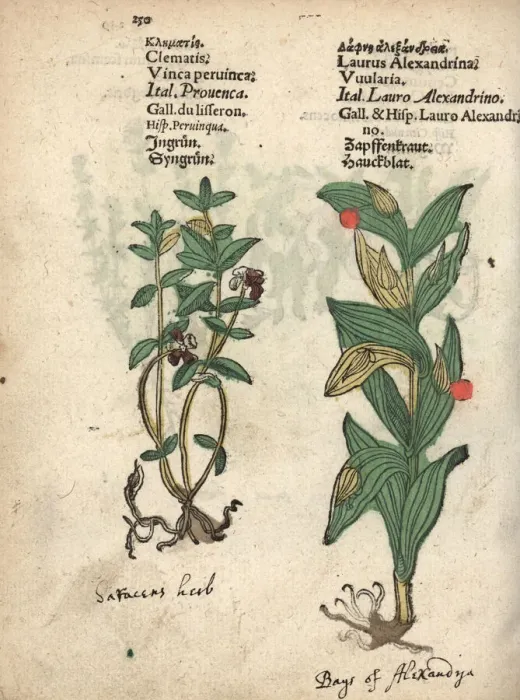 250
Κλημετίς.
Clematis?
Vinca peruinca?
Ital. Prouenca.
Gall. du lisseron.
Hisp. Peruinqua.
Jngrün.
Syngrün?
Δάφνη ἀλεξάνδρεα.
Laurus Alexandrina?
Vuularia.
Ital. Lauro Alexandrino.
Gall. & Hisp. Lauro Alexandri
no.
Zapffenkraut?
Hauckblat.
Saracens herb
Bays of Alexandria